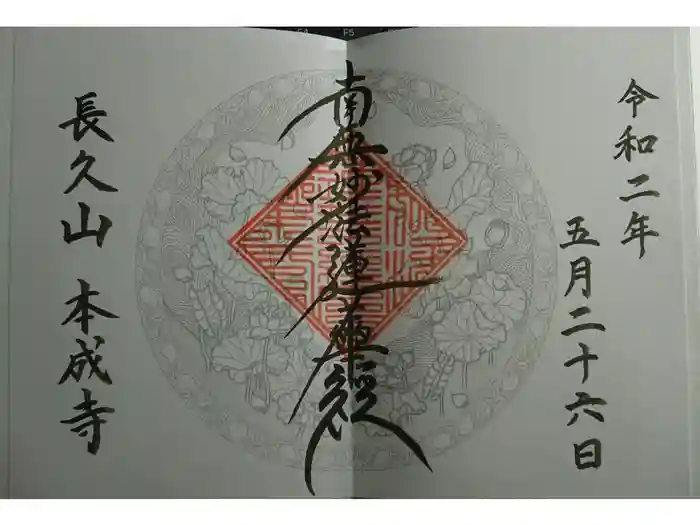 令和二年
五月二十六日
南無妙法蓮華経
長久山 本成寺